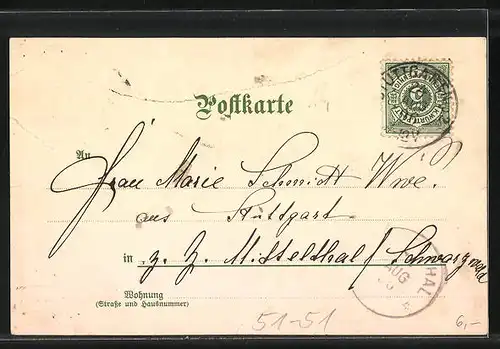 STUTTGART
Postkarte
An
Frau Marie Schmidt Wwe.
aus Stuttgart
in z. Z. Mittelthal / Schwarzwald
Wohnung
(Straße und Hausnummer)
THAL
AUG
51-51
6,-